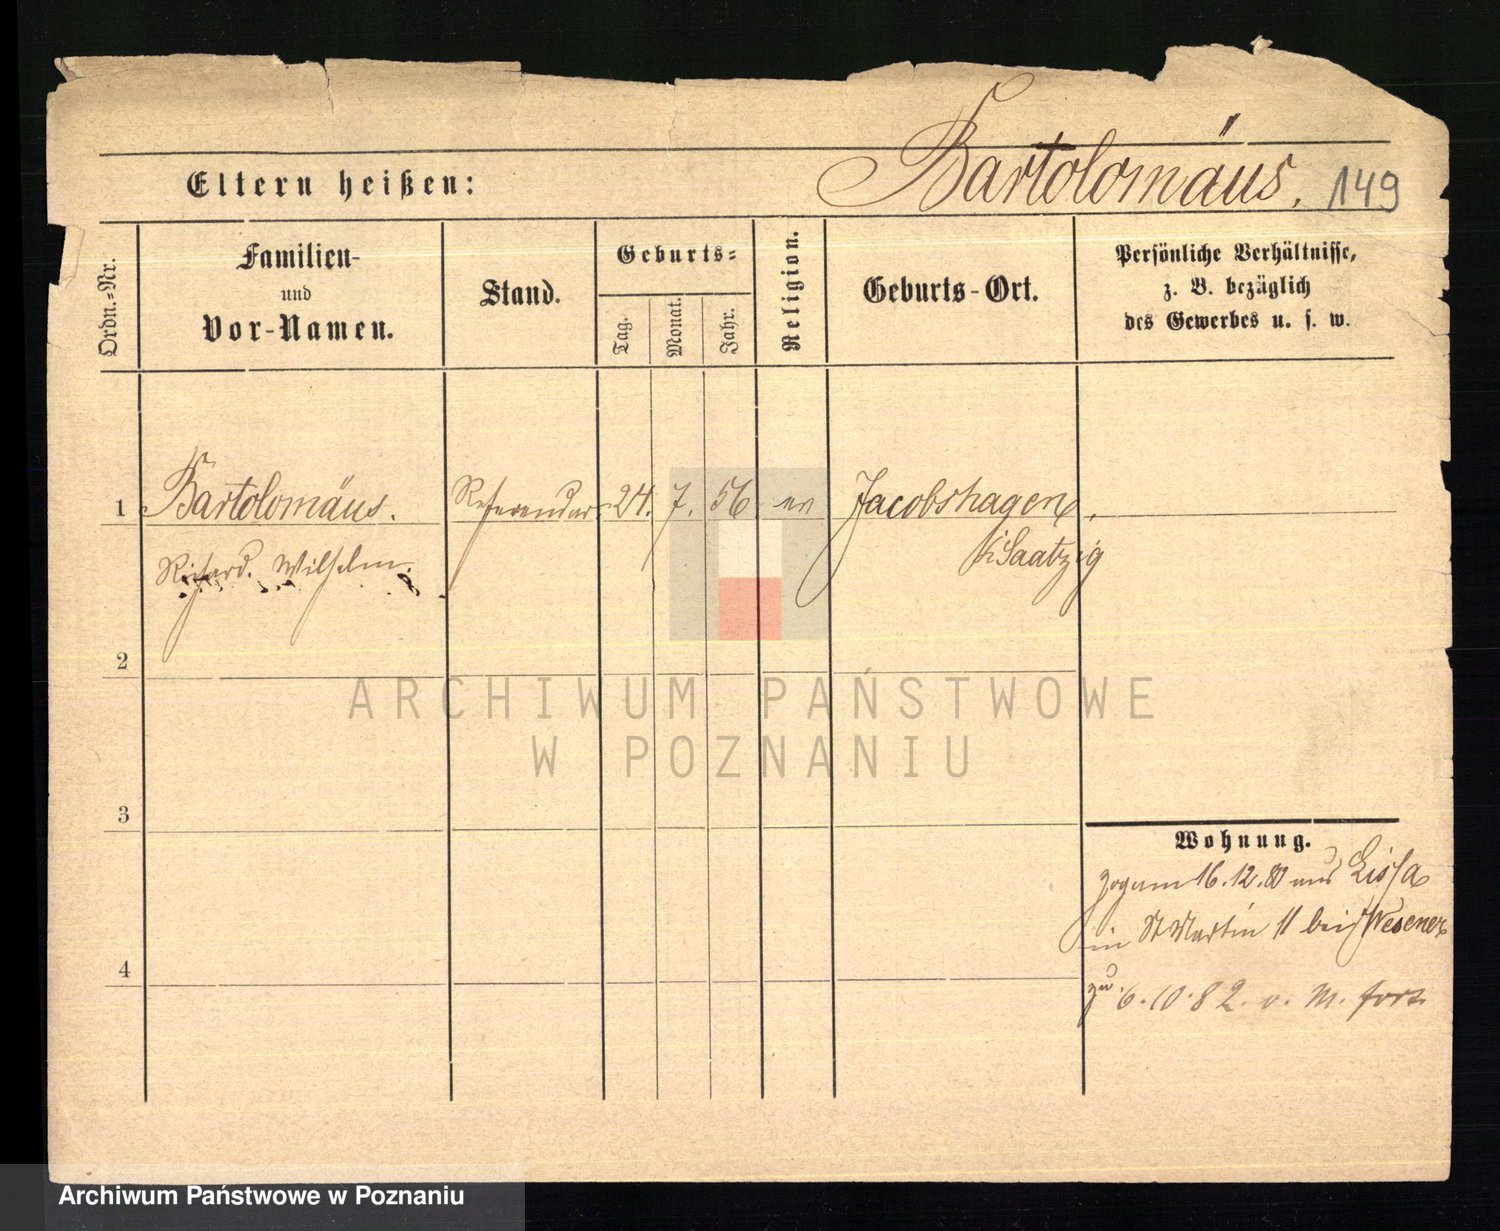 Bartolomäus. 149
Eltern heißen:
Ordn.=Nr.
Familien-
und
Vor-Namen.
Stand.
Geburts=
Tag.
Monat.
Jahr.
Religion.
Geburts-Ort.
Persönliche Verhältnisse,
z. B. bezüglich
des Gewerbes u. s. w.
1 Bartolomäus. Referendar 24. 7. 56 ev Jacobshagen.
Richard. Wilhelm. Saatzig
2
3
4
Wohnung.
zog am 16.12.80 aus Lissa
in St Martin 11 bei Wesener
6.10.82. v. M. fort
ARCHIWUM PAŃSTWOWE
W POZNANIU
Archiwum Państwowe w Poznaniu